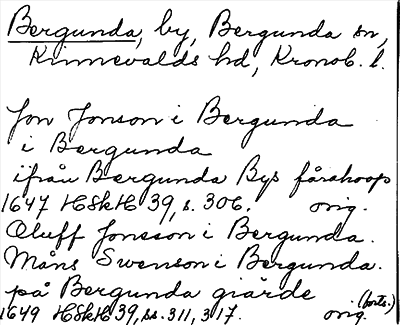 Bergunda, by, Bergunda sn,
Kinnevalds hd, Kronob. l.
Jon Jonson i Bergunda
i Bergunda
ifrån Bergunda Bys fårahoop
1647 HSkH 39, s. 306. orig.
Oluff Jonsson i Bergunda.
Måns Swenson i Bergunda.
på Bergunda giärde (forts.)
1649 HSkH 39, ss. 311, 317. orig.